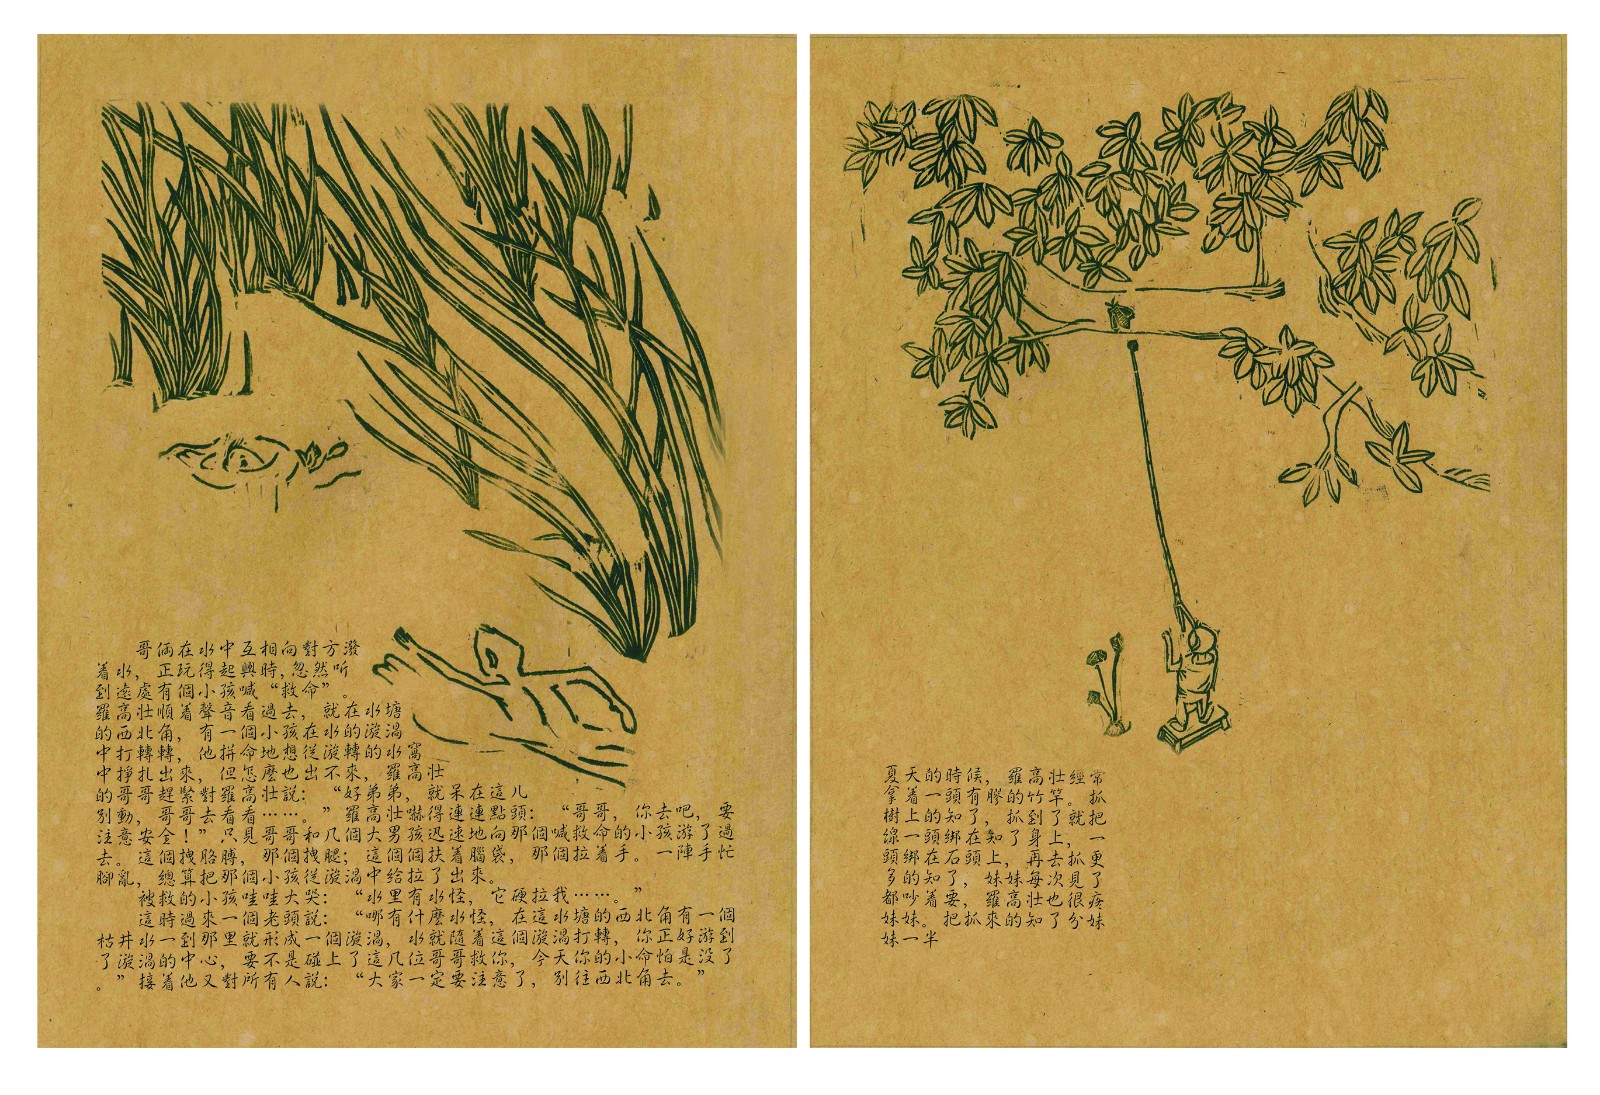 哥倆在水中互相向對方潑
着水，正玩得起興時，忽然听
到遠處有個小孩喊“救命”。
羅高壯順着聲音看過去，就在水塘
的西北角，有一個小孩在水的漩渦
中打轉轉，他拼命地想從漩轉的水窩
中掙扎出來，但怎麽也出不來，羅高壯
的哥哥趕緊對羅高壯説：“好弟弟，就呆在這儿
别動，哥哥去看看……。”羅高壯嚇得連連點頭：“哥哥，你去吧，要
注意安全！”只見哥哥和几個大男孩迅速地向那個喊救命的小孩游了過
去。這個拽胳膊，那個拽腿；這個個扶着腦袋，那個拉着手。一陣手忙
脚亂，總算把那個小孩從漩渦中给拉了出來。
被救的小孩哇哇大哭：“水里有水怪，它硬拉我……。”
這時過來一個老頭説：“哪有什麽水怪，在這水塘的西北角有一個
枯井水一到那里就形成一個漩渦，水就隨着這個漩渦打轉，你正好游到
了漩渦的中心，要不是碰上了這几位哥哥救你，今天你的小命怕是没了
。”接着他又對所有人説：“大家一定要注意了，别往西北角去。”
夏天的時候，羅高壯經常
拿着一頭有膠的竹竿。抓
樹上的知了，抓到了就把
綫一頭綁在知了身上，一
頭綁在石頭上，再去抓更
多的知了，妹妹每次見了
都吵着要，羅高壯也很疼
妹妹。把抓來的知了分妹
妹一半